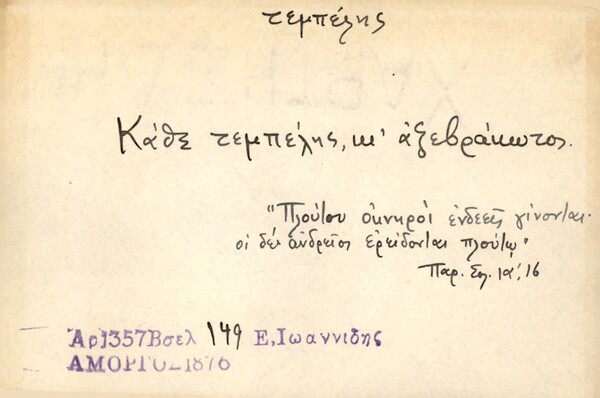 τεμπέλης
Κάθε τεμπέλης, κι' ἀξεβράκωτος.
"Πλούτου ὀκνηροὶ ἐνδεεῖς γίνονται·
οἱ δὲ ἀνδρεῖοι ἐρείδονται πλούτῳ"
Παρ. Σολ. ια', 16
Ἀρ1357Βσελ 149 Ε, Ἰωαννιδης
ΑΜΟΡΓΟΣ1876